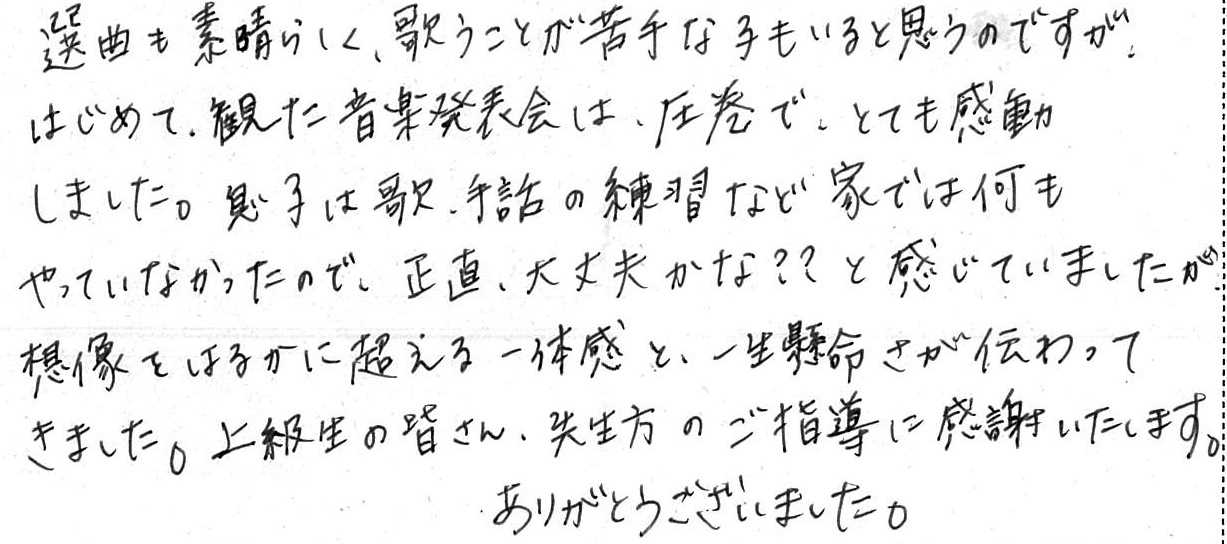 選曲も素晴らしく、歌うことが苦手な子もいると思うのですが、
はじめて、観た音楽発表会は、圧巻で、とても感動
しました。息子は歌、手話の練習など家では何も
やっていなかったので、正直、大丈夫かな??と感じていましたが、
想像をはるかに超える一体感と、一生懸命さが伝わって
きました。上級生の皆さん、先生方のご指導に感謝いたします。
ありがとうございました。